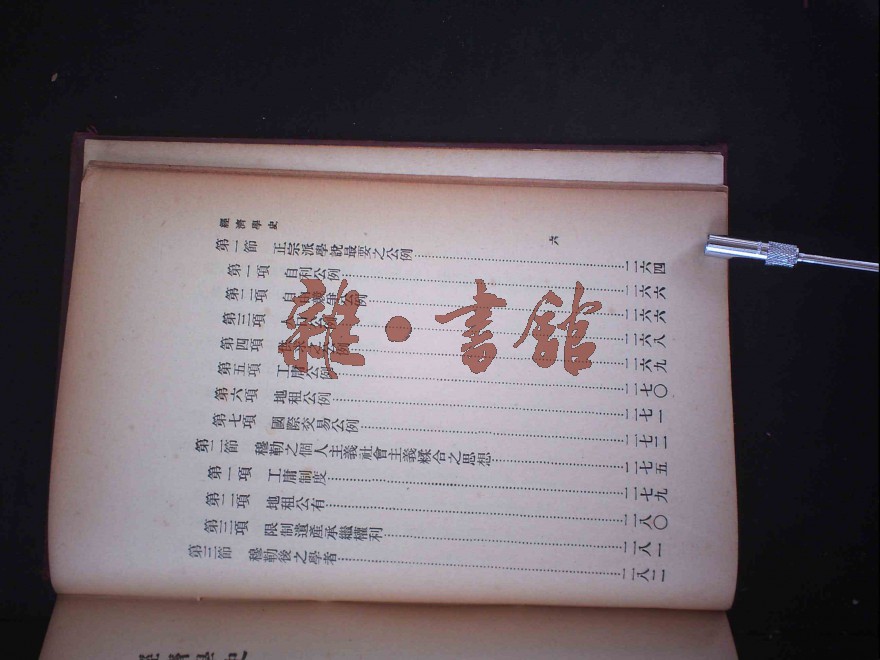 經濟學史
六
第一節 正宗派學說最要之公例……二六四
第一項 自利公例……二六六
第二項 自由競爭公例……二六六
第三項 人口公例……二六八
第四項 供求之公例……二六九
第五項 工庸公例……二七〇
第六項 地租公例……二七一
第七項 國際交易公例……二七二
第二節 穆勒之個人主義社會主義糅合之思想……二七五
第一項 工庸制度……二七九
第二項 地租公有……二八〇
第三項 限制遺產承繼權利……二八一
第三節 穆勒後之學者……二八二
雜·書館